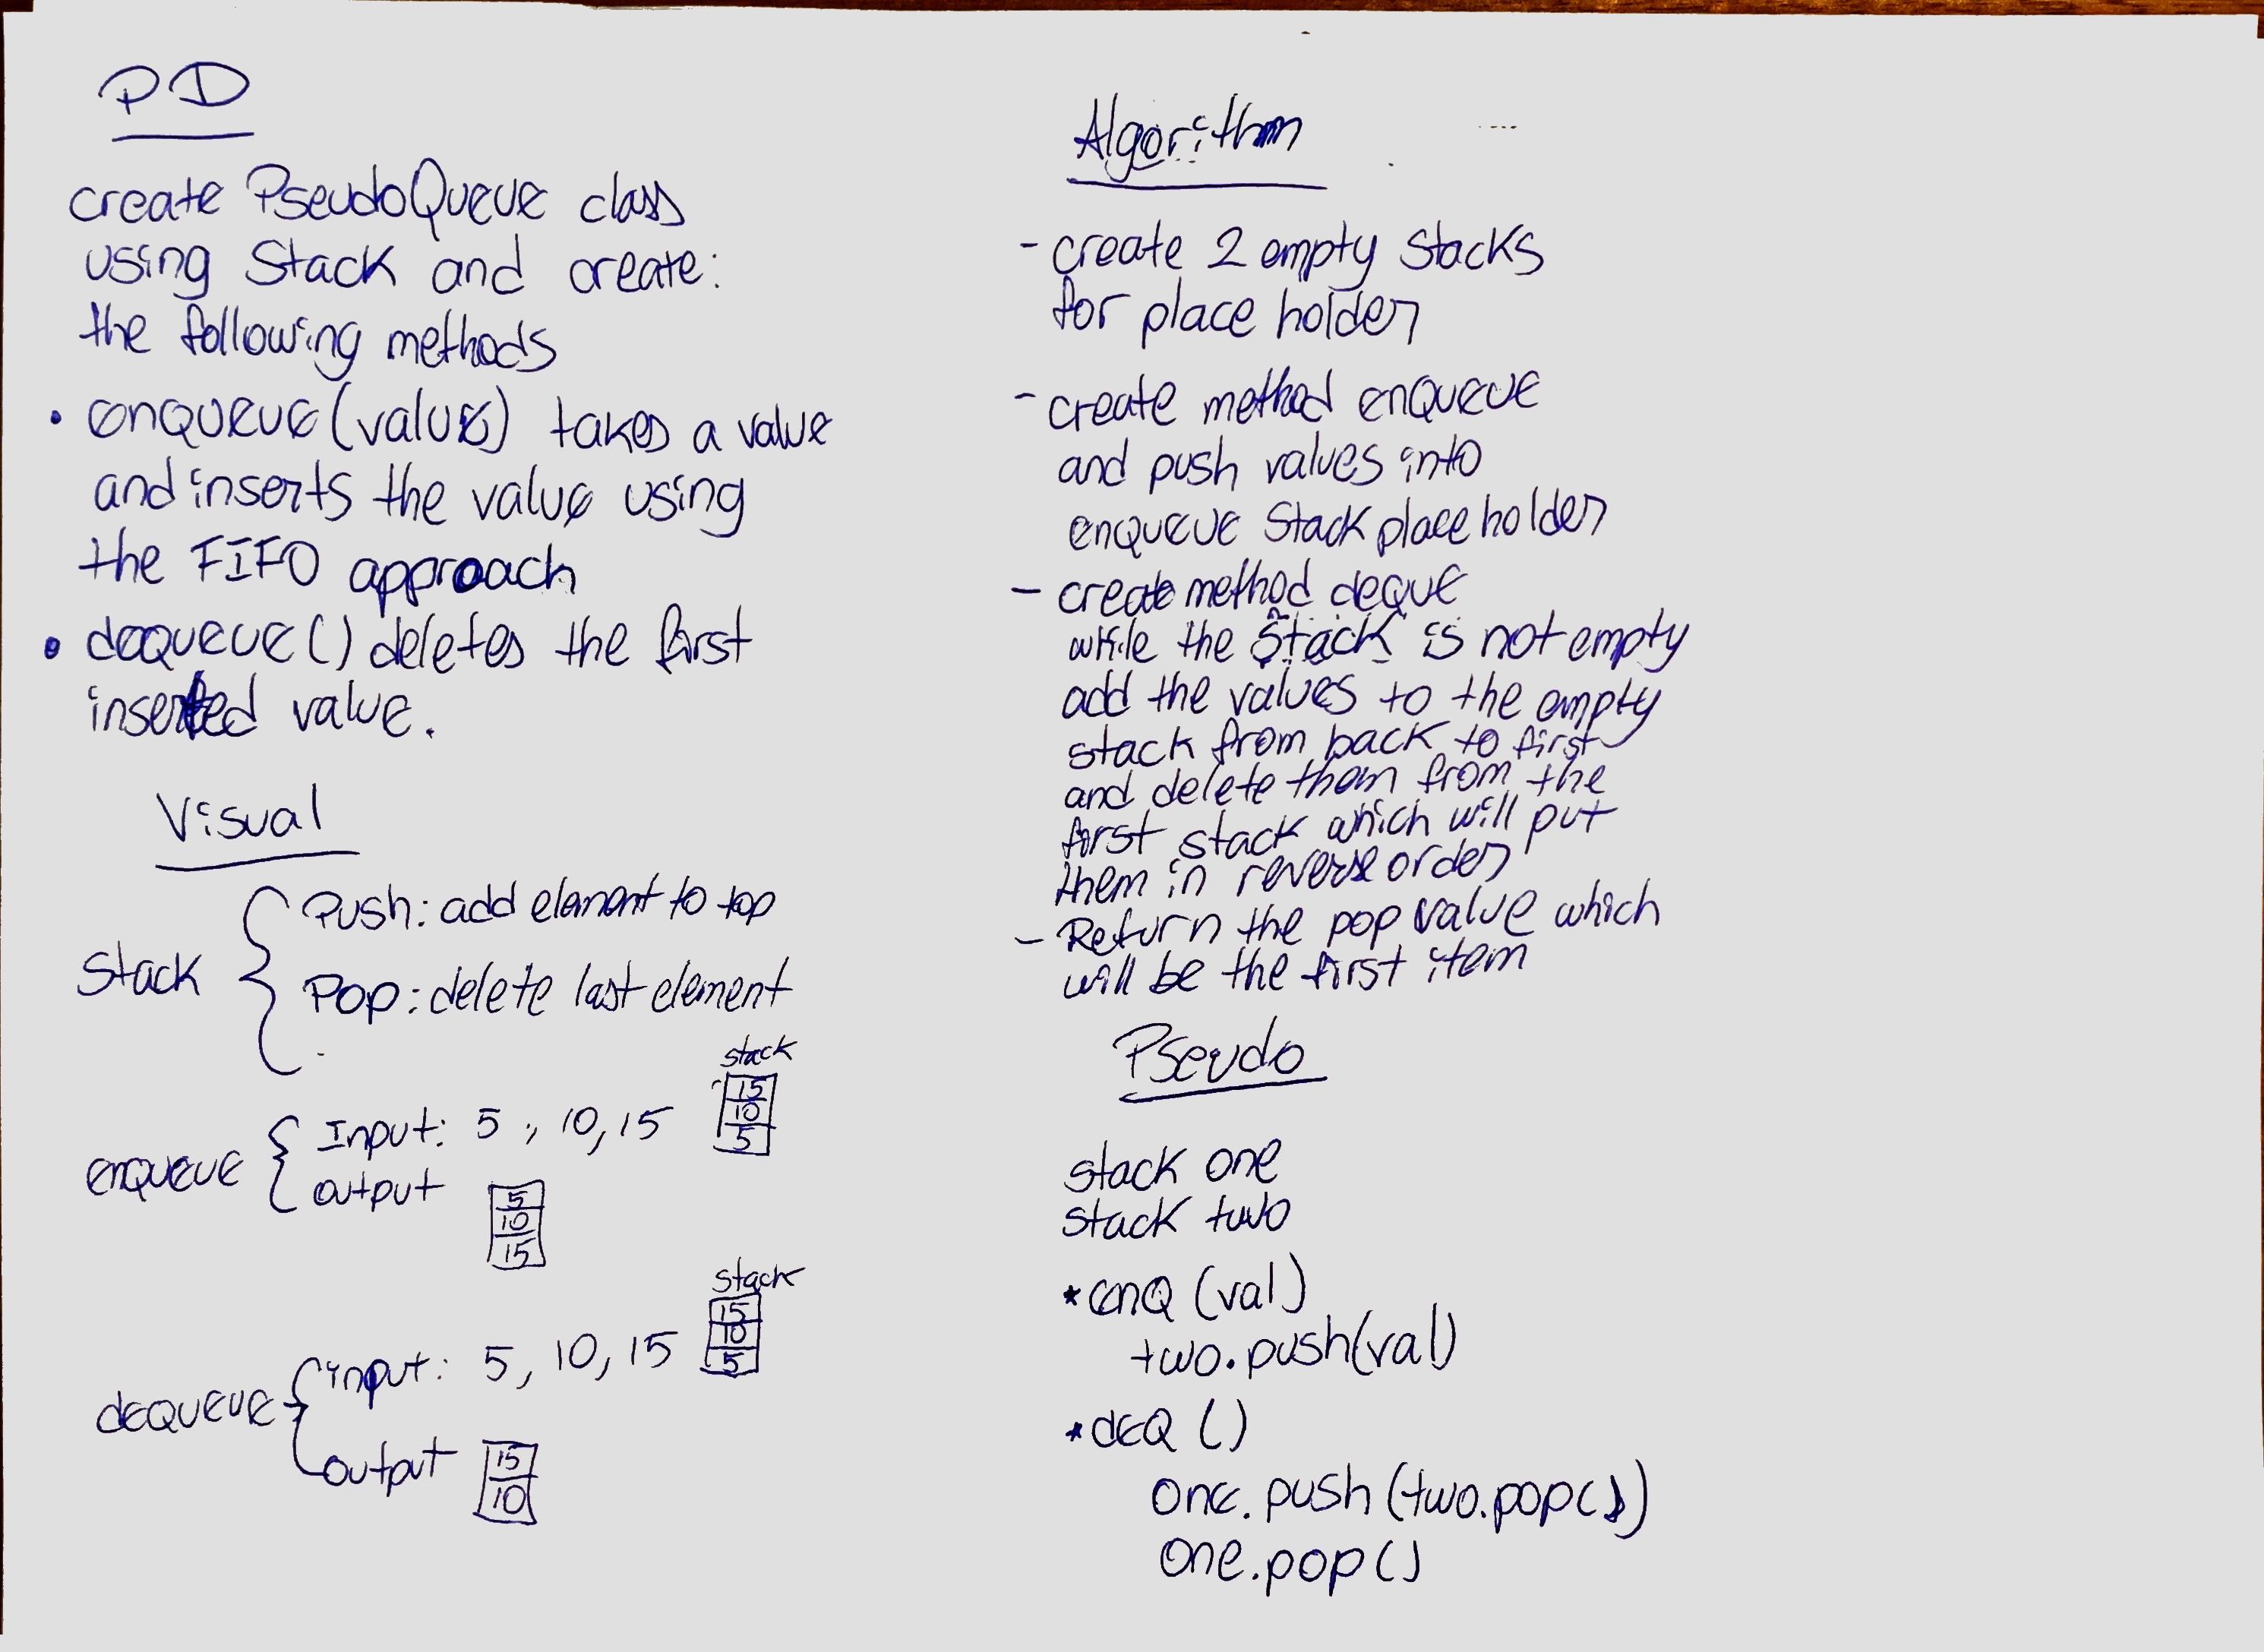 PD
create PseudoQueue class
using Stack and create:
the following methods
• enqueue(value) takes a value
and inserts the value using
the FIFO approach
• dequeue() deletes the first
inserted value.
Visual
Stack
Push: add element to top
Pop: delete last element
stack
15
10
5
enqueue
Input: 5, 10, 15
output
5
10
15
stack
15
10
5
dequeue
input: 5, 10, 15
output
15
10
Algorithm
- create 2 empty Stacks
for place holder
- create method enqueue
and push values into
enqueue Stack place holder
- create method deque
while the Stack is not empty
add the values to the empty
stack from back to first
and delete them from the
first stack which will put
them in reverse order
- Return the pop value which
will be the first item
Pseudo
stack one
stack two
* enQ (val)
two.push(val)
* deQ ()
one.push(two.pop())
one.pop()